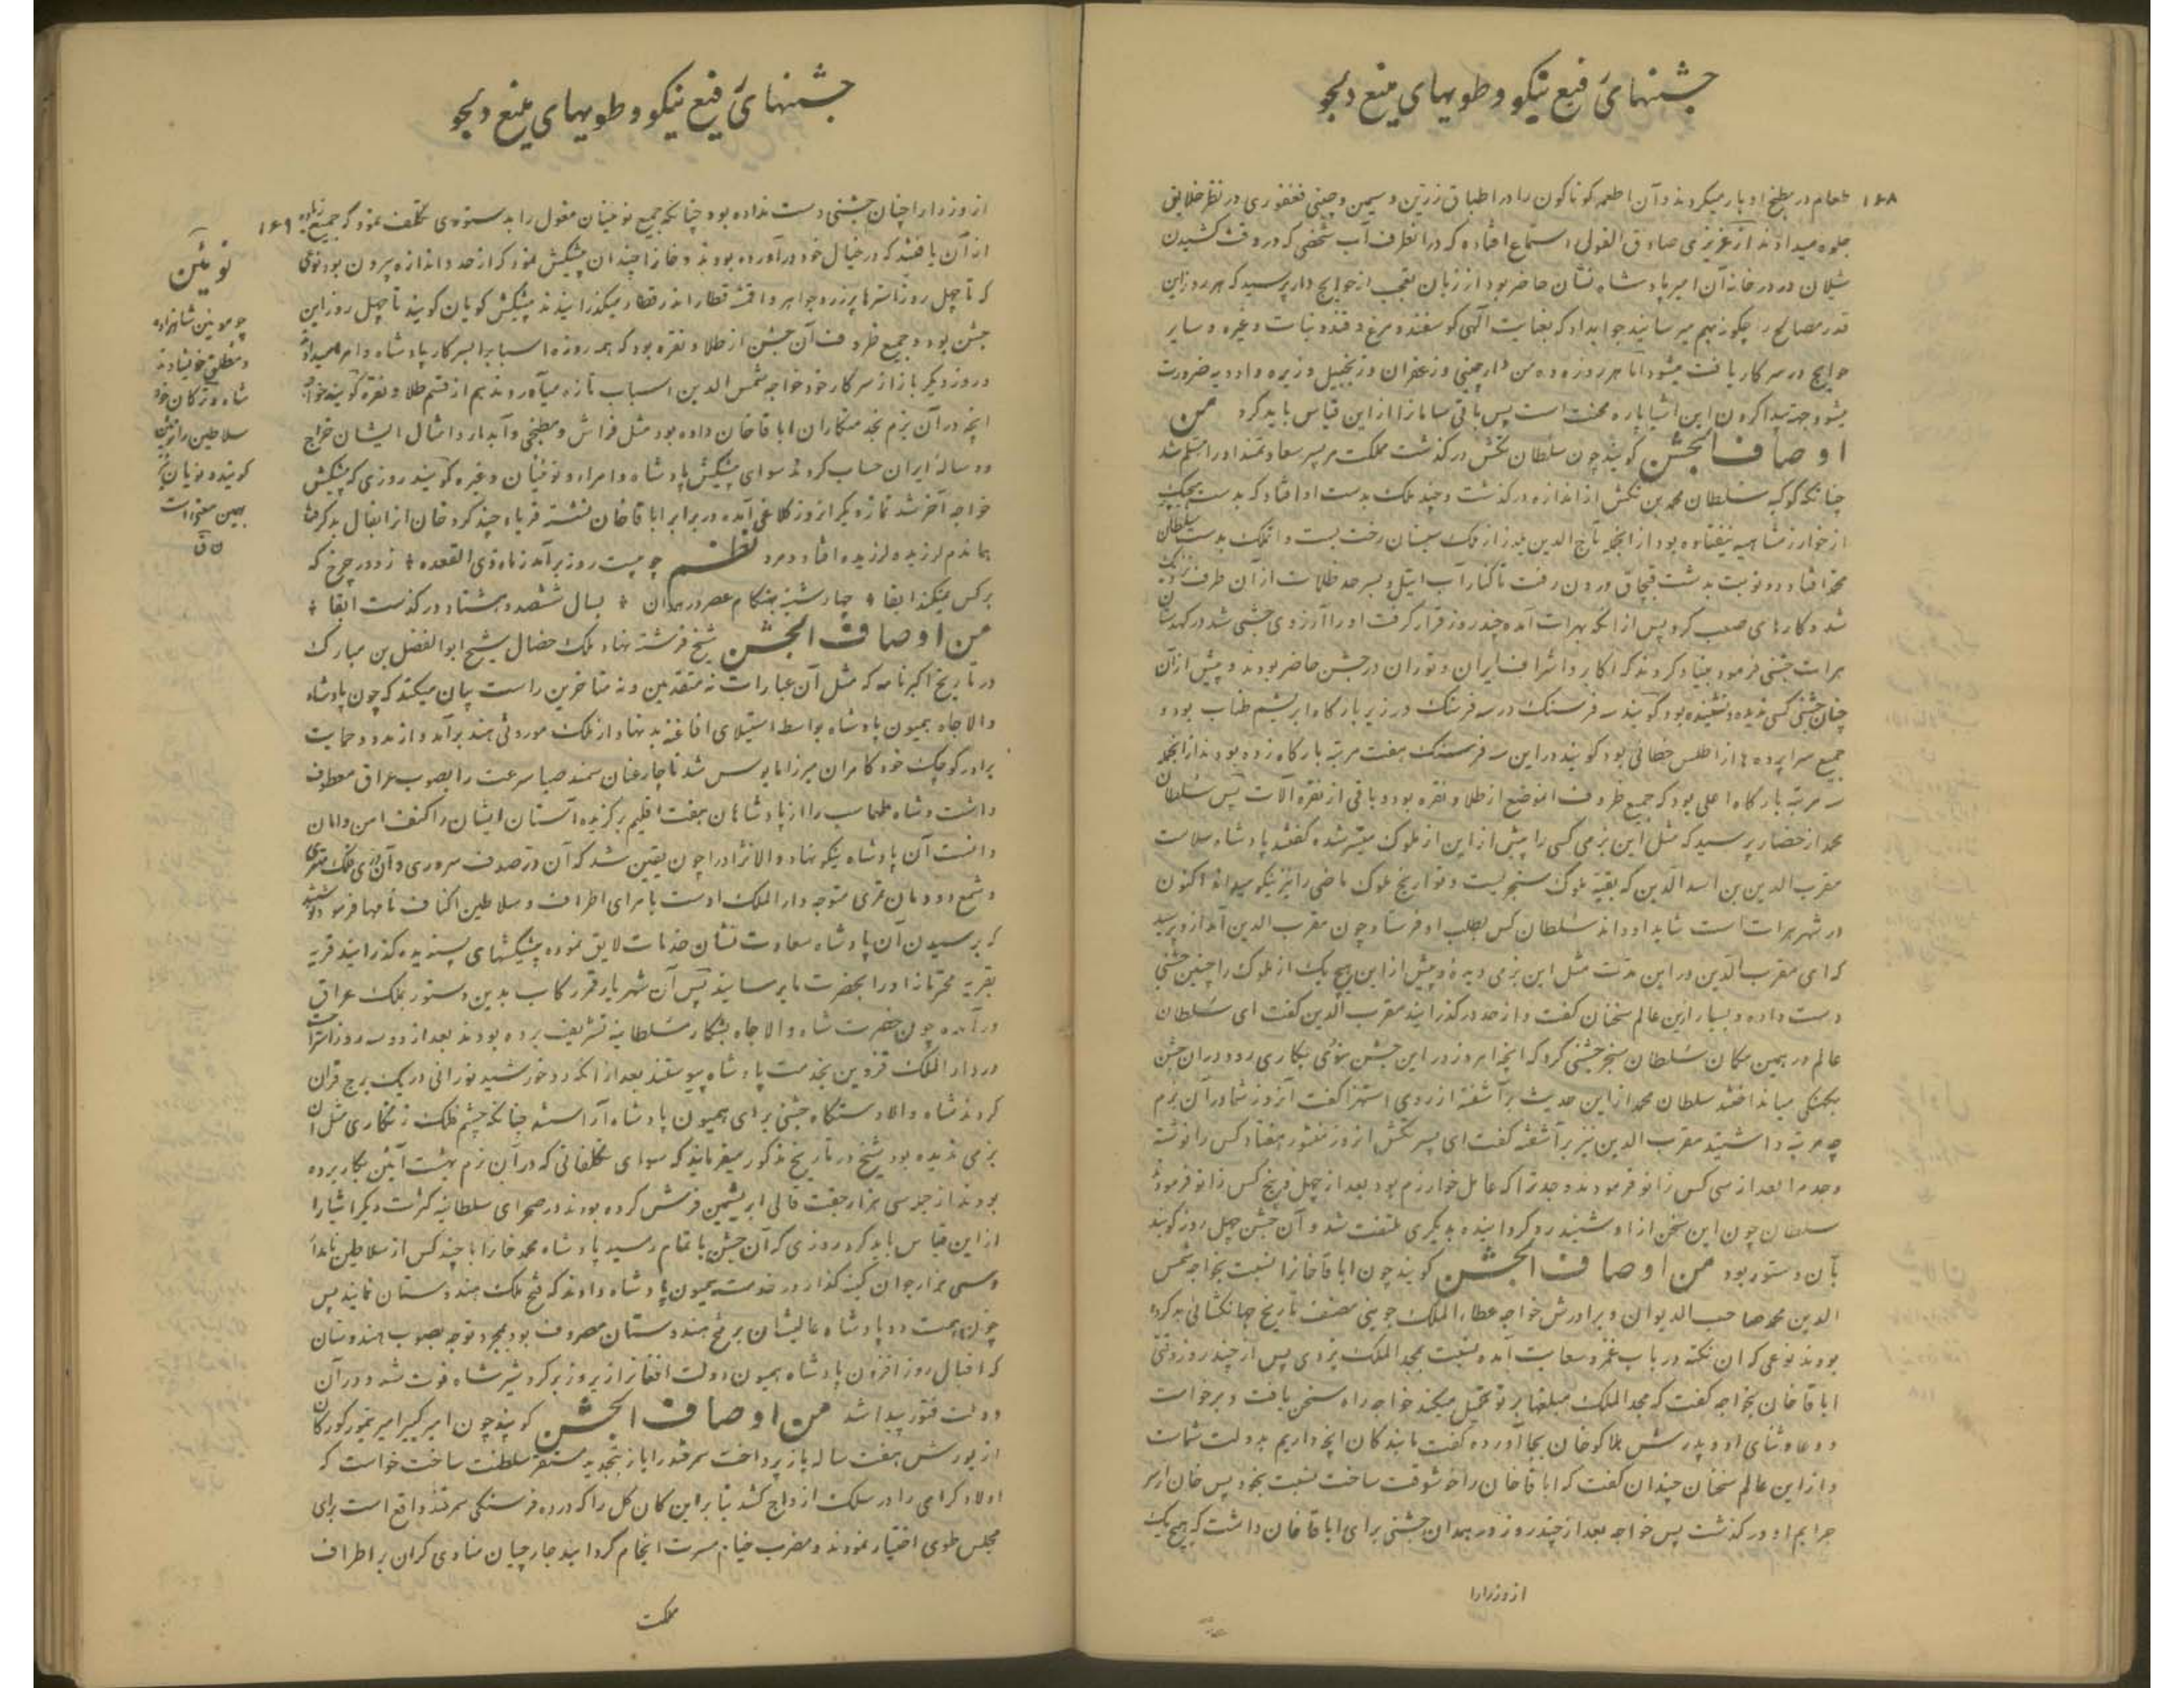 جشنهای رفیع نیکو و طویهای منیع دلجو
۱۶۸
طعام در مطبخ او بار میکردند و آن اطعمه کوناکون را در اطباق زرین و سیمین و چینی فغفوری در نظر خلایق
جلوه میدادند از عزیزی صادق القول استماع افتاده که در انطرف آب شخصی که در وقت کشیدن
شیلان در در خانه آن امیر پادشاه نشان حاضر بود از زبان تعجب از حوایج دار پرسید که هر روز این
قدر مصالح را چکونه بهم میرسانید جوابداد که بعنایت آلهی کوسفند و مرغ و قند و نبات و غیره و سایر
حوایج در سرکار یافت میشود اما هر روزه ده من دارچینی و زعفران و زنجبیل و زیره و ادویه ضرورت
میشود جهة پیدا کردن این اشیا پاره محنت است پس باقی سامانرا از این قیاس باید کرد من
اوصاف الجشن کویند چون سلطان تکش در کذشت مملکت بر پسر سعادتمند او را مسلم شد
چنانکه کویند سلطان محمد بن تکش از اندازه در کذشت و چند ملک بدست او افتاد که بدست هیچیک
از خوارزمشاهیه نیفتاده بود از انجمله تاج الدین یلدز از ملک سیستان رخت بست و انملک بدست سلطان
محمد افتاد و دو نوبت بدشت قبچاق درون رفت تا کنار آب ایتل و بسرحد ظلمات از آن طرف نزدیک
شد و کارهای صعب کرد پس از انکه بهرات آمده چند روز قرار کرفت او را آرزوی جشنی شد در کهدستان
هرات جشنی فرمود بنیاد کردند که اکابر و اشراف ایران و توران در جشن حاضر بودند و پیش از آن
چنان جشنی کسی ندیده و نشنیده بود کویند سه فرسنک در سه فرسنک در زیر بارکاه و ابریشم طناب بود و
جمیع سراپرده ها از اطلس خطائی بود کویند در این سه فرسنک هفت مرتبه بارکاه زده بودند از انجمله
سه مرتبه بارکاه اعلی بود که جمیع ظروف انموضع از طلا و نقره بود و باقی از نقره آلات پس سلطان
محمد از حضار پرسید که مثل این بزمی کسی را پیش از این از ملوک میسر شده کفتند پادشاه سلامت
مقرب الدین بن اسد الدین که بقیه ملوک سنجریست و تواریخ ملوک ماضی را نیز نیکو میداند اکنون
در شهر هرات است شاید او داند سلطان کس بطلب او فرستاد چون مقرب الدین آمد از و پرسید
که ای مقرب الدین در این مدت مثل این بزمی دیده و پیش از این هیچ یک از ملوک را چنین جشنی
دست داده و بسیار ازین عالم سخنان کفت و از حد در کذرانید مقرب الدین کفت ای سلطان
عالم در همین مکان سلطان سنجر جشنی کرد که انچه امروز در این جشن بکاری رود در ان جشن
میکفتند سلطان محمد از این حدیث بر آشفته از روی استهزا کفت آنروز شما در آن بزم
چه مرتبه داشتید مقرب الدین نیز بر آشفته کفت ای پسر تکش انروز منشور هفتاد کس را نوشته
و جد مرا بعد از سی کس زانو فرمودند و جد ترا که عامل خوارزم بود بعد از چهل و پنج کس زانو فرمود
سلطان چون این سخن از او شنید رو کردانیده بدیکری ملتفت شد و آن جشن چهل روز کویند
بآن دستور بود من اوصاف الجشن کویند چون اباقاخانرا نسبت بخواجه شمس
الدین محمد صاحب الدیوان و برادرش خواجه عطاء الملک جوینی مصنف تاریخ جهانکشائی بد کرده
بودند نوعی که ان نکته در باب غمز و سعایت آمده نسبت بمجد الملک یزدی پس از چند روز وقتی
اباقاخان بخواجه کفت که مجد الملک مبلغها بر تو تحمیل میکند خواجه راه سخن یافت و برخواست
و دعا و ثنای او و پدرش هلاکوخان بجا آورده کفت ما بندکان انچه داریم بدولت شماست
و از این عالم سخنان چندان کفت که اباقاخان را خوشوقت ساخت نسبت بخود پس خان از سر
جرایم او در کذشت پس خواجه بعد از چند روز در همدان جشنی برای اباقاخان داشت که هیچ یک
از وزرا را
جشنهای رفیع نیکو و طویهای منیع دلجو
۱۶۹
از وزرا را چنان جشنی دست نداده بود چنانکه جمیع نوئینان مغول را بدستوری تکلف نمود که جمیع زیاده
از آن یافتند که در خیال خود در آورده بودند و خانرا چندان پیشکش نمود که از حد و اندازه بیرون بود نوعی
که تا چهل روز استرها پر زر و جواهر و اقمشه قطار اندر قطار میکذرانیدند پیشکش کویان کویند تا چهل روز این
جشن بود و جمیع ظروف آن جشن از طلا و نقره بود که همه روزه اسبابرا بسرکار پادشاه و امرا میداد
و روز دیکر باز از سرکار خود خواجه شمس الدین اسباب تازه میآوردند هم از قسم طلا و نقره کویند خواجه
انچه در آن بزم بخدمتکاران اباقاخان داده بود مثل فراش و مطبخی و آبدار و امثال ایشان خراج
دو ساله ایران حساب کردند سوای پیشکش پادشاه و امراء و نوئینان و غیره کویند روزی که پیشکش
خواجه آخر شد نماز دیکر انروز کلاغی آمده در برابر اباقاخان نشسته فریاد چند کرد خان از انفال بد کرفت
هماندم لرزیده لرزیده افتاد و مرد نظم چو بیست روز برآمد ز ماه ذی القعده * ز دور چرخ که
بر کس نمیکند ابقا * چهارشنبه بهنکام عصر در همدان * بسال ششصد و هشتاد در کذشت ابقا *
من اوصاف الجشن شیخ فرشته نهاد ملک خصال شیخ ابو الفضل بن مبارک
در تاریخ اکبرنامه که مثل آن عبارات نه متقدمین و نه متاخرین راست بیان میکند که چون پادشاه
والا جاه همیون پادشاه بواسطه استیلای افاغنه بد نهاد از ملک موروثی هند برآمد و از مدد و حمایت
برادر کوچک خود کامران میرزا مایوس شد ناچار عنان سمند صبا سرعت را بصوب عراق معطوف
داشت و شاه طهماسب را از پادشاهان هفت اقلیم برکزیده آستان ایشان را کنف امن و امان
دانست آن پادشاه نیکو نهاد والا نژاد را چون یقین شد که آن در صدف سروری و آن دری فلک مهتری
و شمع دودمان متوجه دار الملک اوست بامرای اطراف و سلاطین اکناف نامها فرمود نوشتند
که برسیدن آن پادشاه سعادت نشان خدمات لایق نموده پیشکشهای پسندیده کذرانید قریه
بقریه محترمانه او را بحضرت ما برسانید پس آن شهریار قمر رکاب بدین دستور بملک عراق
درآمده چون حضرت شاه والا جاه بشکار سلطانیه تشریف برده بودند بعد از دو سه روز استراحت
در دار الملک قزوین بخدمت پادشاه پیوستند بعد از انکه دو خورشید نورانی در یک برج قران
کردند شاه والا دستکاه جشنی برای همیون پادشاه آراسته چنانکه چشم فلک زنکاری مثل آن
بزمی ندیده بود شیخ در تاریخ مذکور میفرماید که سوای تکلفاتی که در آن بزم بهشت آئین بکار برده
بودند از جمله سی هزار جفت قالی ابریشمین فرش کرده بودند در صحرای سلطانیه کثرت دیکر اشیا را
از این قیاس باید کرد روزی که آن جشن باتمام رسید پادشاه محمد خانرا با چند کس از سلاطین نامدار
و سی هزار جوان در خدمت همیون پادشاه دادند که فتح ملک هندوستان نمایند پس
چون همت دو پادشاه عالیشان بر فتح هندوستان مصروف بود بمجرد توجه بصوب هندوستان
که اقبال روز افزون پادشاه همیون دولت افغانرا زیر و زبر کرد شیر شاه فوت شد و در آن
دولت فتور پیدا شد من اوصاف الجشن کویند چون امیر کبیر امیر تیمور کورکان
از یورش هفت ساله باز پرداخت سمرقند را باز بتجدید مستقر سلطنت ساخت خواست که
اولاد کرامی را در سلک ازدواج کشد بنابراین کان کل را که در ده فرسنکی سمرقند واقع است برای
مجلس طوی اختیار نمودند و مضرب خیام مسرت انجام کردانید جارچیان منادی کران بر اطراف
مملکت
نوئین
شاهزاده
سلاطین را نوئین
کویند و نویان نیز
بهمین معنی است